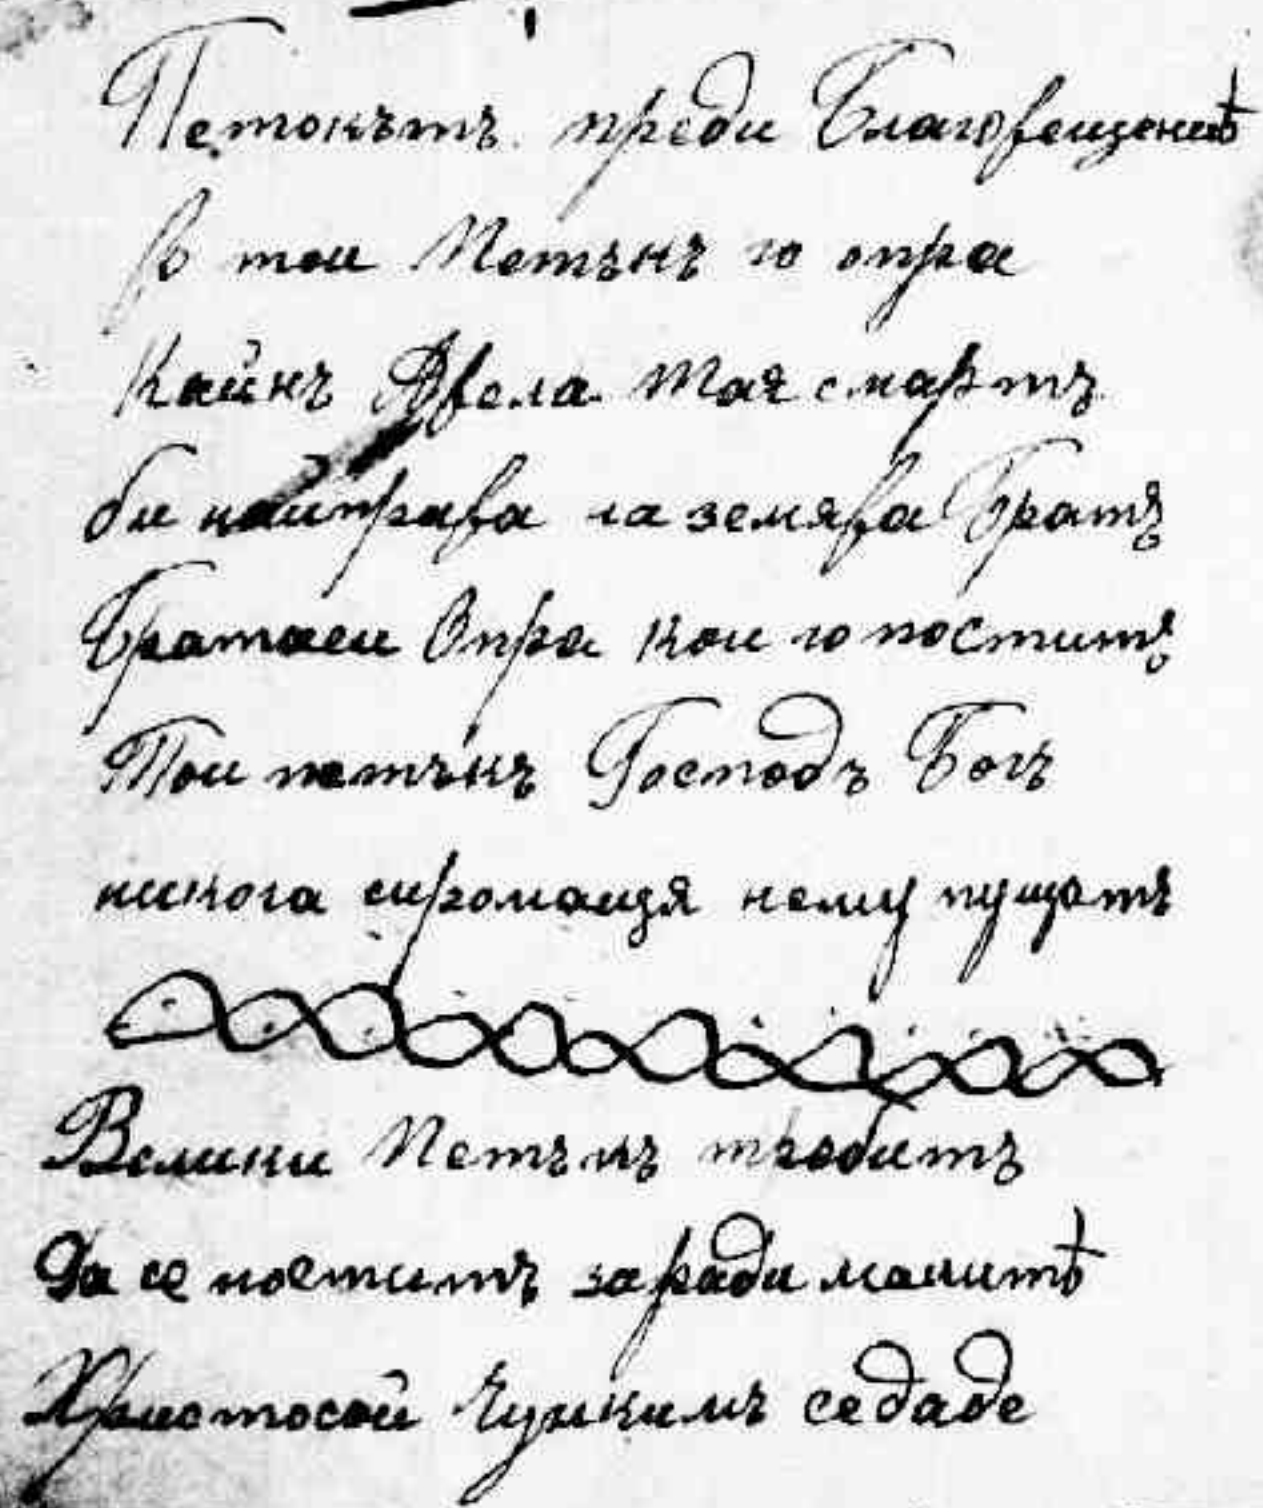 Петокътъ преди Благовещениѣ
в тои Петънъ го опра
Каинъ Авела. Тая смартъ
би найправа на земява Братъ
Братаси Опра кои го поститъ
Тои петънъ Господъ Богъ
никога сиромащя нему пущатъ
Велики Петънъ требитъ
Да се поститъ заради мачитѣ
Христосой Чункимъ се даде